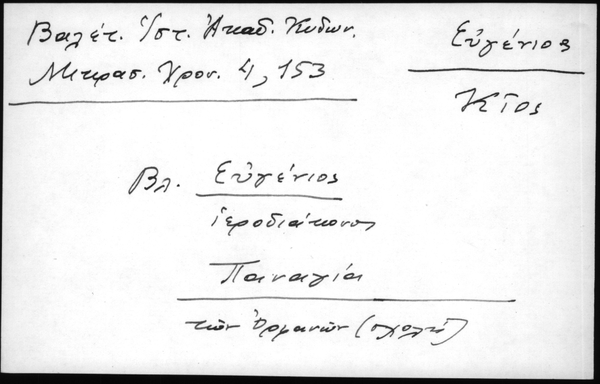 Βαλέτ. Ἱστ. Ἀκαδ. Κυδων.
Μικρασ. Χρον. 4, 153
Εὐγένιος
Κῖος
Βλ. Εὐγένιος
ἱεροδιάκονος
Παναγία
τῶν Ὀρφανῶν (σχολή)